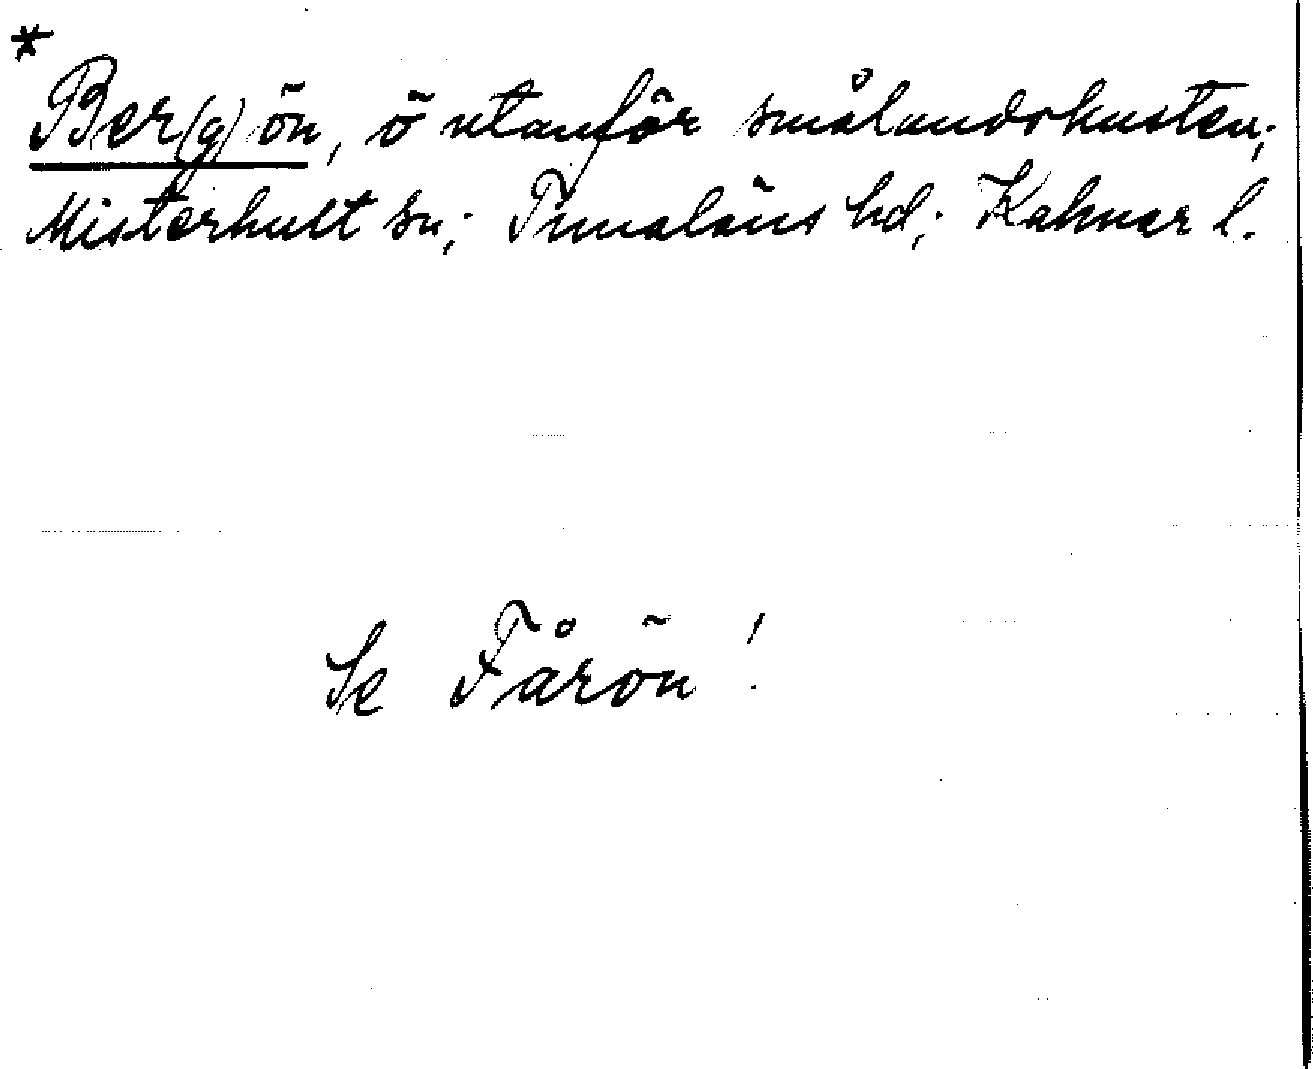 *
Ber(g)ön, ö utanför smålandskusten;
Misterhult sn; Tunaläns hd; Kalmar l.
Se Fårön!